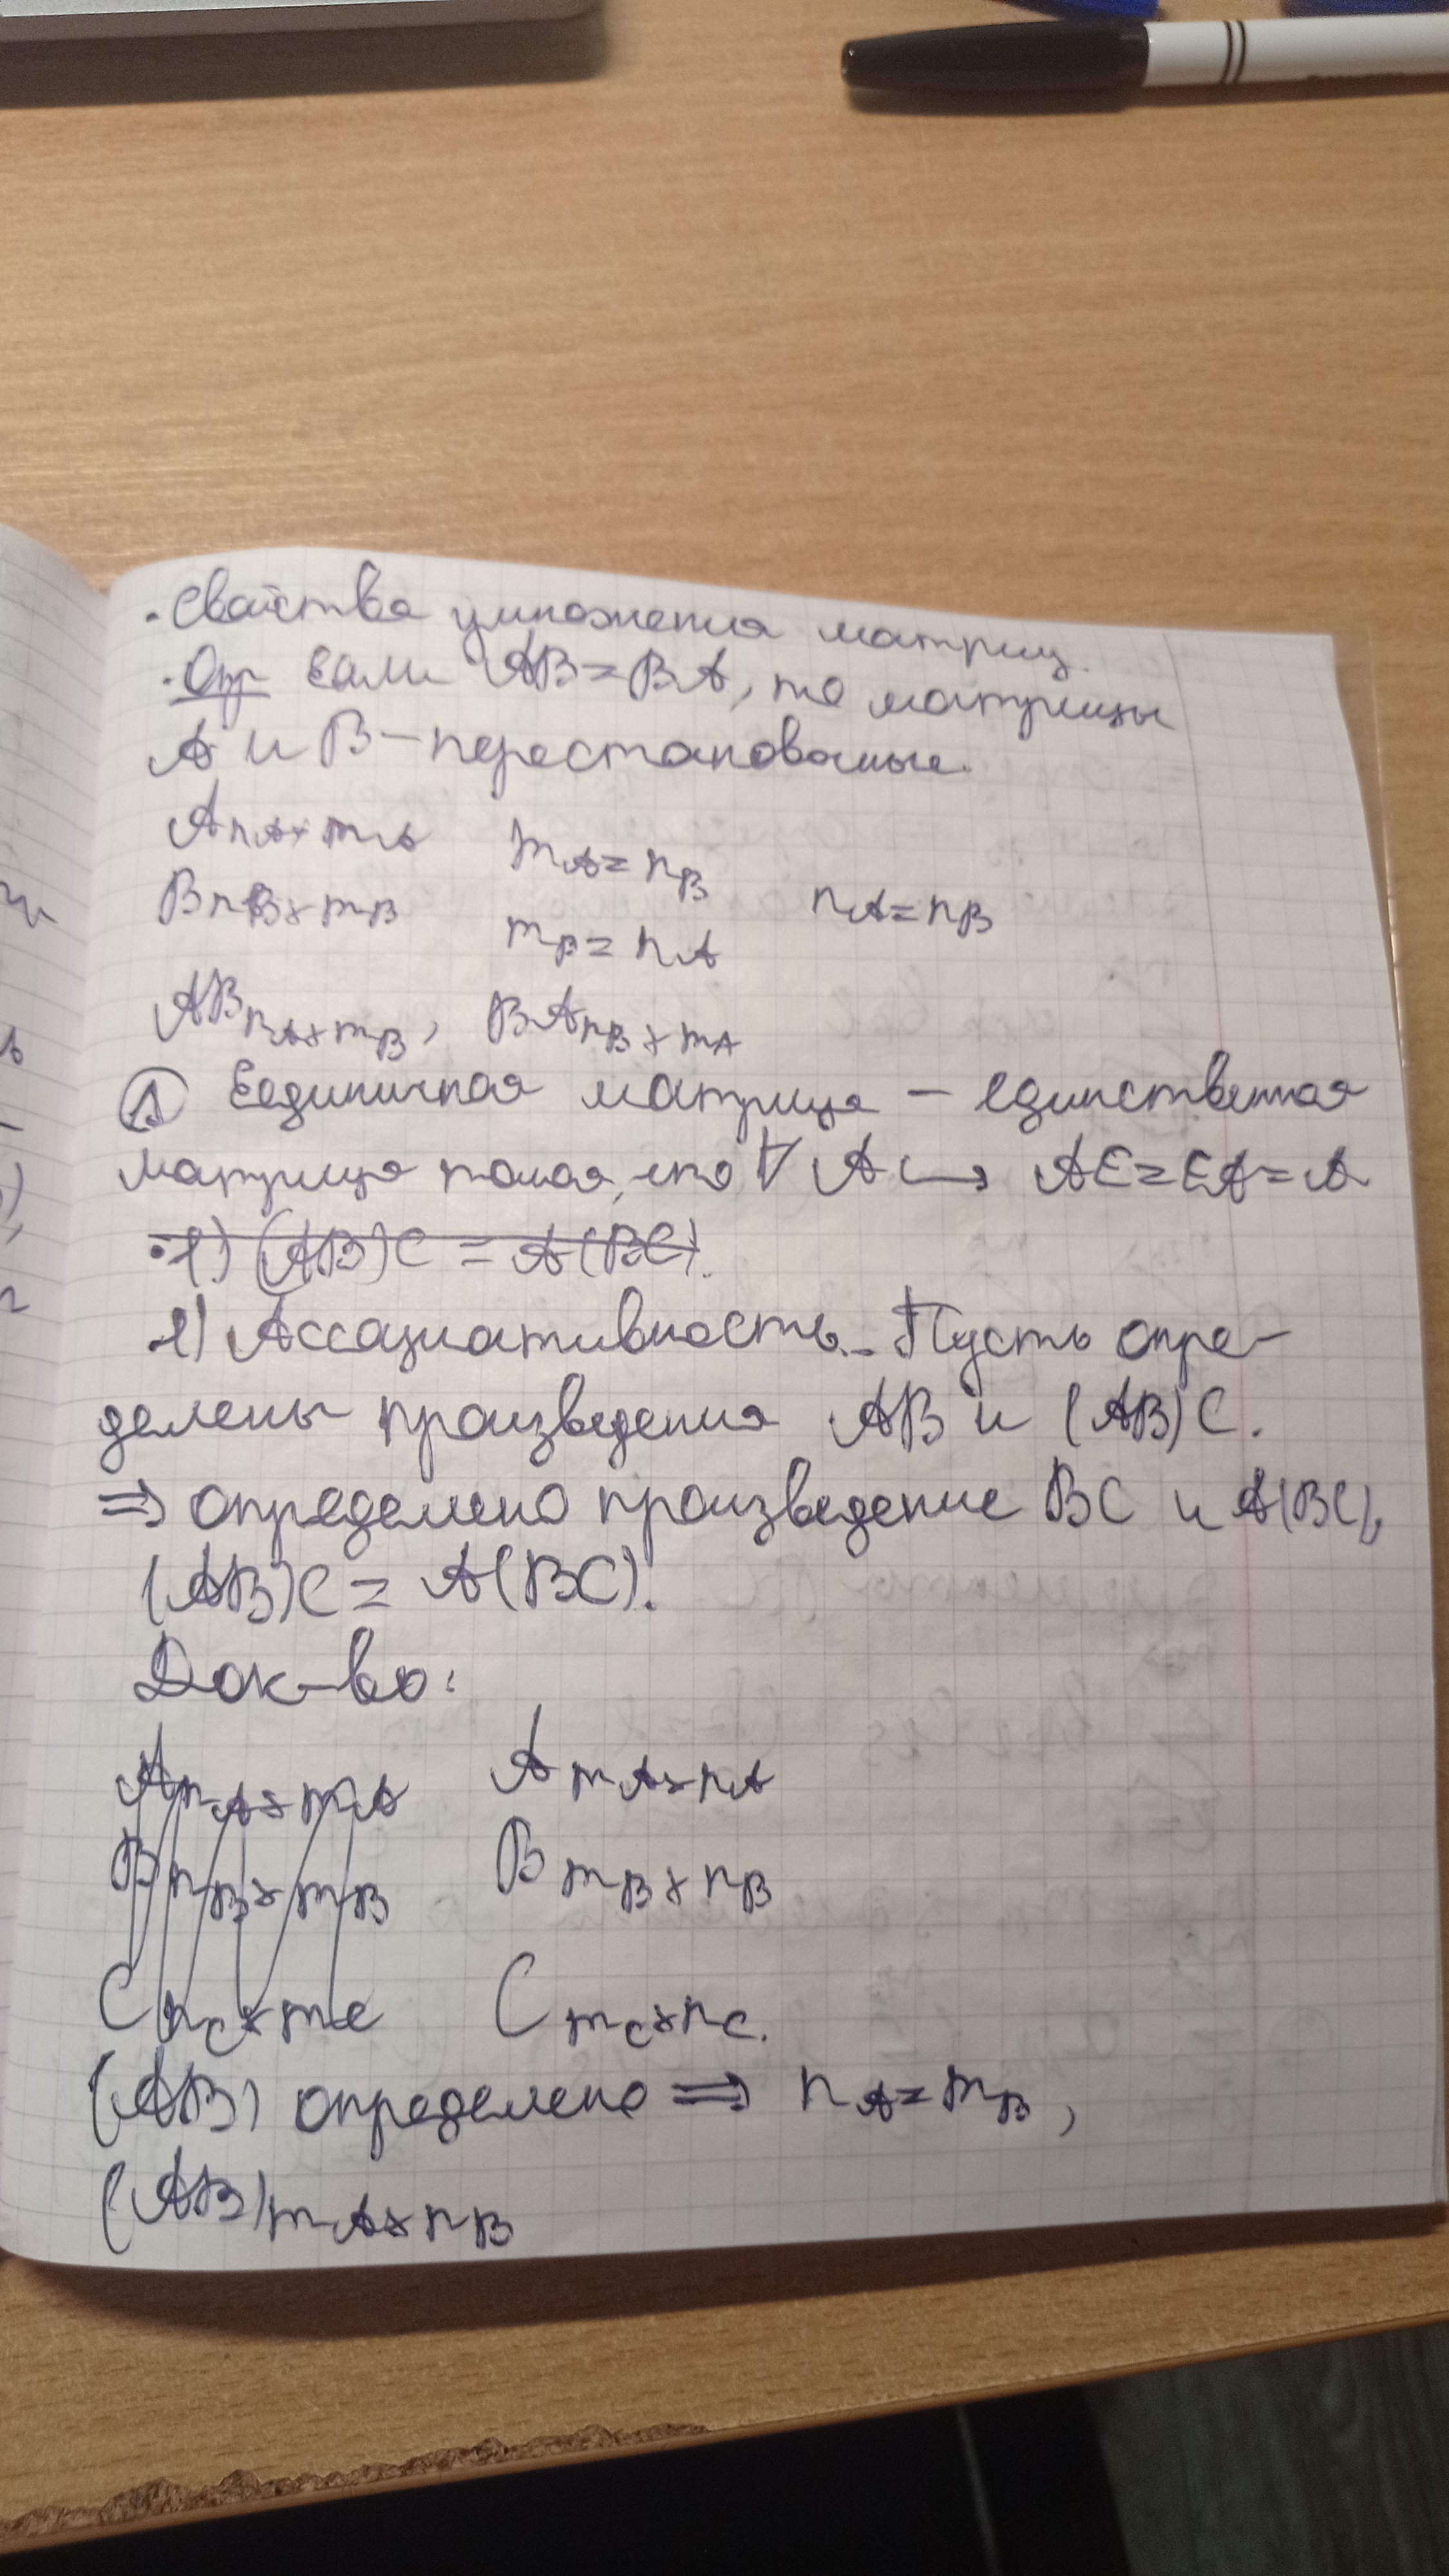 · Свойства умножения матриц.
· Опр Если AB=BA, то матрицы
A и B – перестановочные.
A nA×mA mA=nB
B nB×mB nA=nB
mB=nA
AB nA×mB, BA nB×mA
① Единичная матрица – единственная
матрица такая, что ∀ A ↪ AE=EA=A
·1) (AB)C = A(BC).
1) Ассациативность. Пусть опре-
делены произведения AB и (AB)C.
⇒ определено произведение BC и A(BC),
(AB)C = A(BC).
Док-во:
A nA×mA A mA×nA
B nB×mB B mB×nB
C nC×mC C mC×nC.
(AB) определено ⇒ nA=mB,
(AB) mA×nB